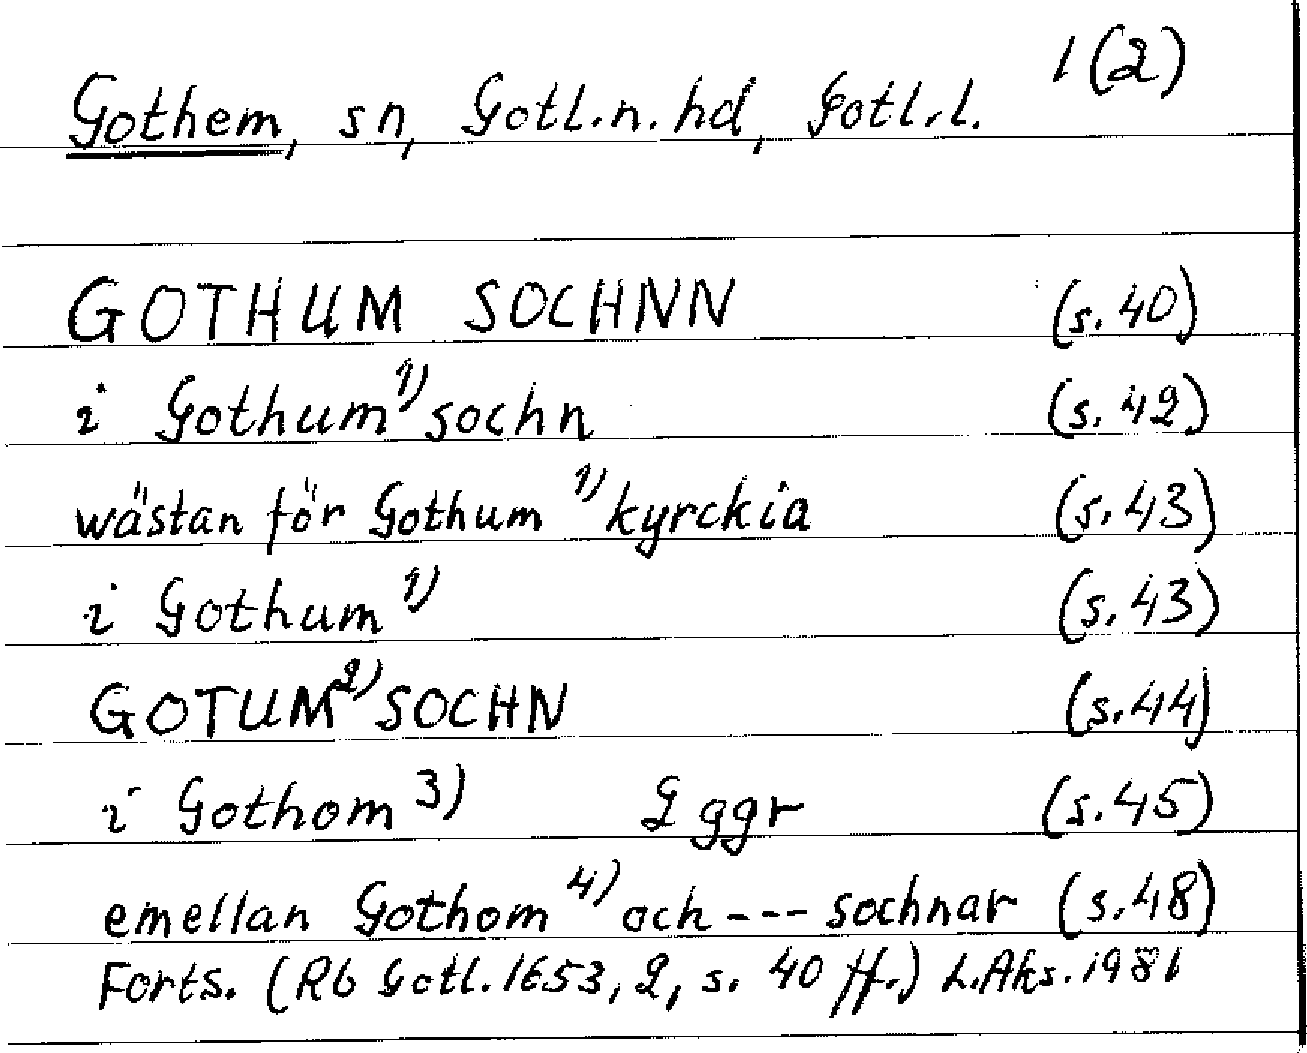 1(2)
Gothem, sn, Gotl.n.hd, Gotl.l.
GOTHUM SOCHNN (s.40)
i Gothum 1) sochn (s.42)
wästan för Gothum 1) kyrckia (s.43)
i Gothum 1) (s.43)
GOTUM 2) SOCHN (s.44)
i Gothom 3) 2 ggr (s.45)
emellan Gothom 4) och --- sochnar (s.48)
Forts. (Rb Gotl. 1653, 2, s. 40 ff.) L.Aks. 1981